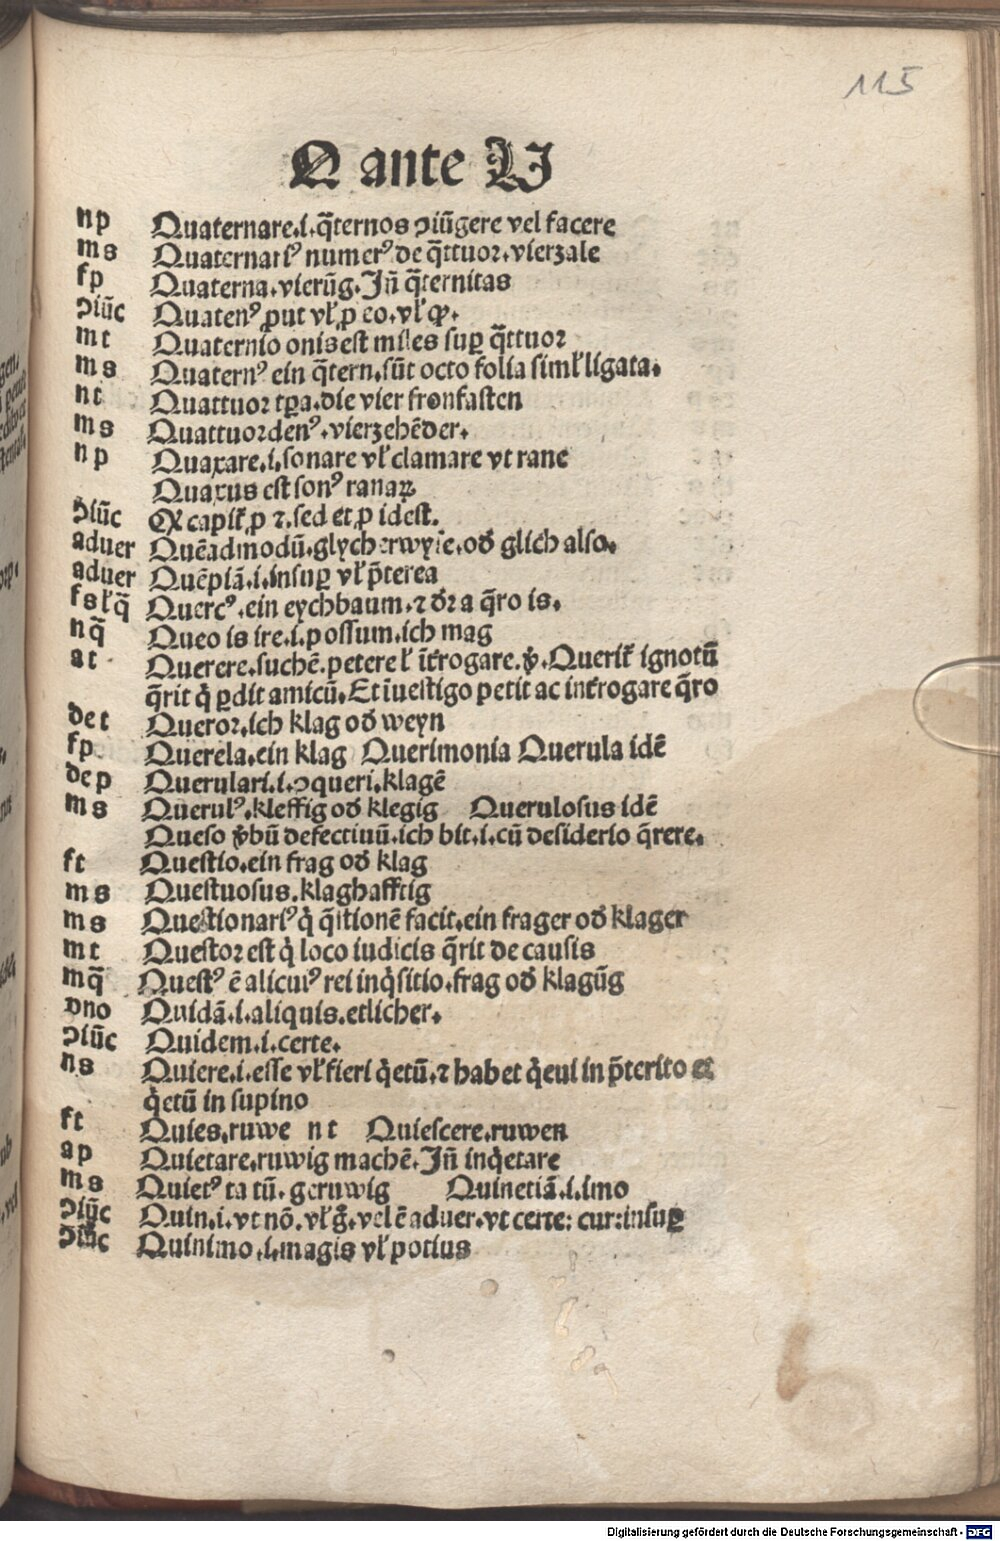 115
Q ante U
np Quaternare.i.q̄ternos ↄiūgere vel facere
ms Quaternariꝰ numerꝰ de q̄ttuor.vierzale
fp Quaterna.vierūg.Jn̄ q̄ternitas
ↄiūc Quatenꝰ ꝓut vł ꝑ eo.vł ꝙ.
mt Quaternio onis est miles suꝑ q̄ttuor
ms Quaternꝰ ein q̄tern.sūt octo folia simł ligata.
nt Quattuor tꝑa.die vier fronfasten
ms Quattuordenꝰ.vierzehēder.
np Quaxare.i.sonare vł clamare vt rane
Quaxus est sonꝰ ranaꝝ
ↄiūc Qꝫ capit̄ ꝓ ⁊.sed et ꝓ idest.
aduer Quēadmodū.glycherwyse.od̄ glich also.
aduer Quēpiā.i.insuꝑ vł p̄terea
fsłq̄ Quercꝰ.ein eychbaum.⁊ d̄r a q̄ro is.
nq̄ Queo is ire.i.possum.ich mag
at Querere.suchē.petere ł īt̄rogare.ꝟ.Querit̄ ignotū
q̄rit q̇ ꝑdit amicū.Et īuestigo petit ac int̄rogare q̄ro
det Queror.ich klag od̄ weyn
fp Querela.ein klag Querimonia Querula idē
dep Querulari.i.ↄqueri.klagē
ms Querulꝰ.kleffig od̄ klegig Querulosus idē
Queso ꝟbū defectiuū.ich bit.i.cū desiderio q̄rere.
ft Questio.ein frag od̄ klag
ms Questuosus.klaghafftig
ms Questionariꝰ q̇ q̄stionē facit.ein frager od̄ klager
mt Questor est q̇ loco iudicis q̄rit de causis
mq̄ Questꝰ ē alicuiꝰ rei inq̇sitio.frag od̄ klagūg
pno Quidā.i.aliquis.etlicher.
ↄiūc Quidem.i.certe.
ns Quiere.i.esse vł fieri q̇etū.⁊ habet q̇eui in p̄terito et
q̇etū in supino
ft Quies.ruwe nt Quiescere.ruwen
ap Quietare.ruwig machē.Jn̄ inq̇etare
ms Quietꝰ ta tū.geruwig Quinetiā.i.imo
ↄiūc Quin.i.vt nō.vł q̇.vel ē aduer.vt certe: cur:insuꝑ
ↄiūc Quinimo.i.magis vł potius
Digitalisierung gefördert durch die Deutsche Forschungsgemeinschaft - DFG